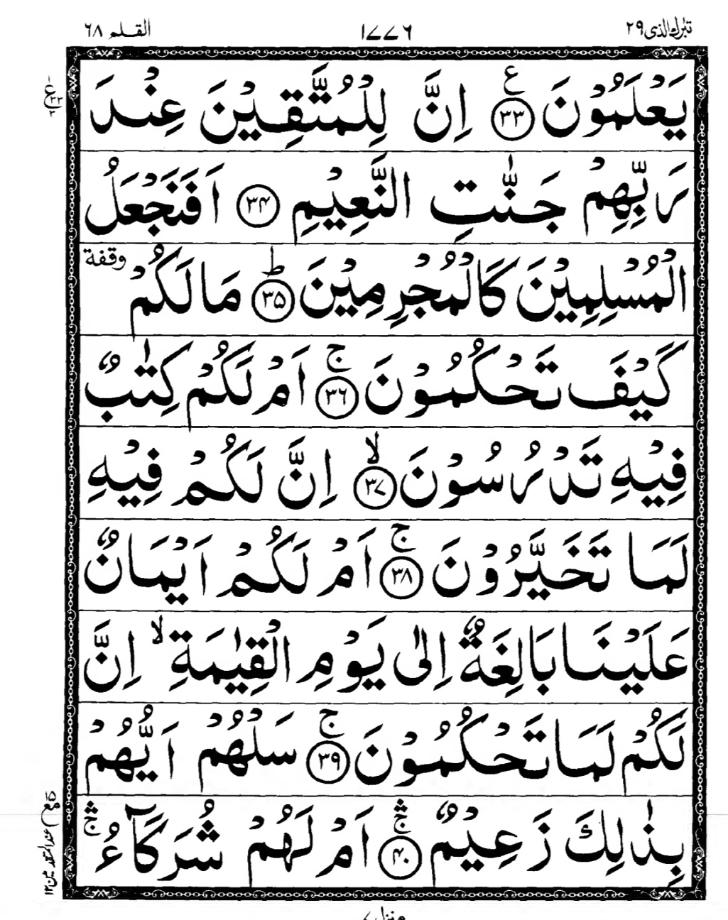 تبٰرك الذى ٢٩ ١٧٧٦ القلم ٦٨
يَعْلَمُوْنَ ﴿٣٣﴾ ع اِنَّ لِلْمُتَّقِيْنَ عِنْدَ
رَبِّهِمْ جَنّٰتِ النَّعِيْمِ ﴿٣٤﴾ اَفَنَجْعَلُ
الْمُسْلِمِيْنَ كَالْمُجْرِمِيْنَ ﴿٣٥﴾ ط مَا لَكُمْ وقفة
كَيْفَ تَحْكُمُوْنَ ﴿٣٦﴾ ج اَمْ لَكُمْ كِتٰبٌ
فِيْهِ تَدْرُسُوْنَ ﴿٣٧﴾ لا اِنَّ لَكُمْ فِيْهِ
لَمَا تَخَيَّرُوْنَ ﴿٣٨﴾ ج اَمْ لَكُمْ اَيْمَانٌ
عَلَيْنَا بَالِغَةٌ اِلٰى يَوْمِ الْقِيٰمَةِ لا اِنَّ
لَكُمْ لَمَا تَحْكُمُوْنَ ﴿٣٩﴾ ج سَلْهُمْ اَيُّهُمْ
بِذٰلِكَ زَعِيْمٌ ﴿٤٠﴾ اَمْ لَهُمْ شُرَكَآءُ
منزل ٧